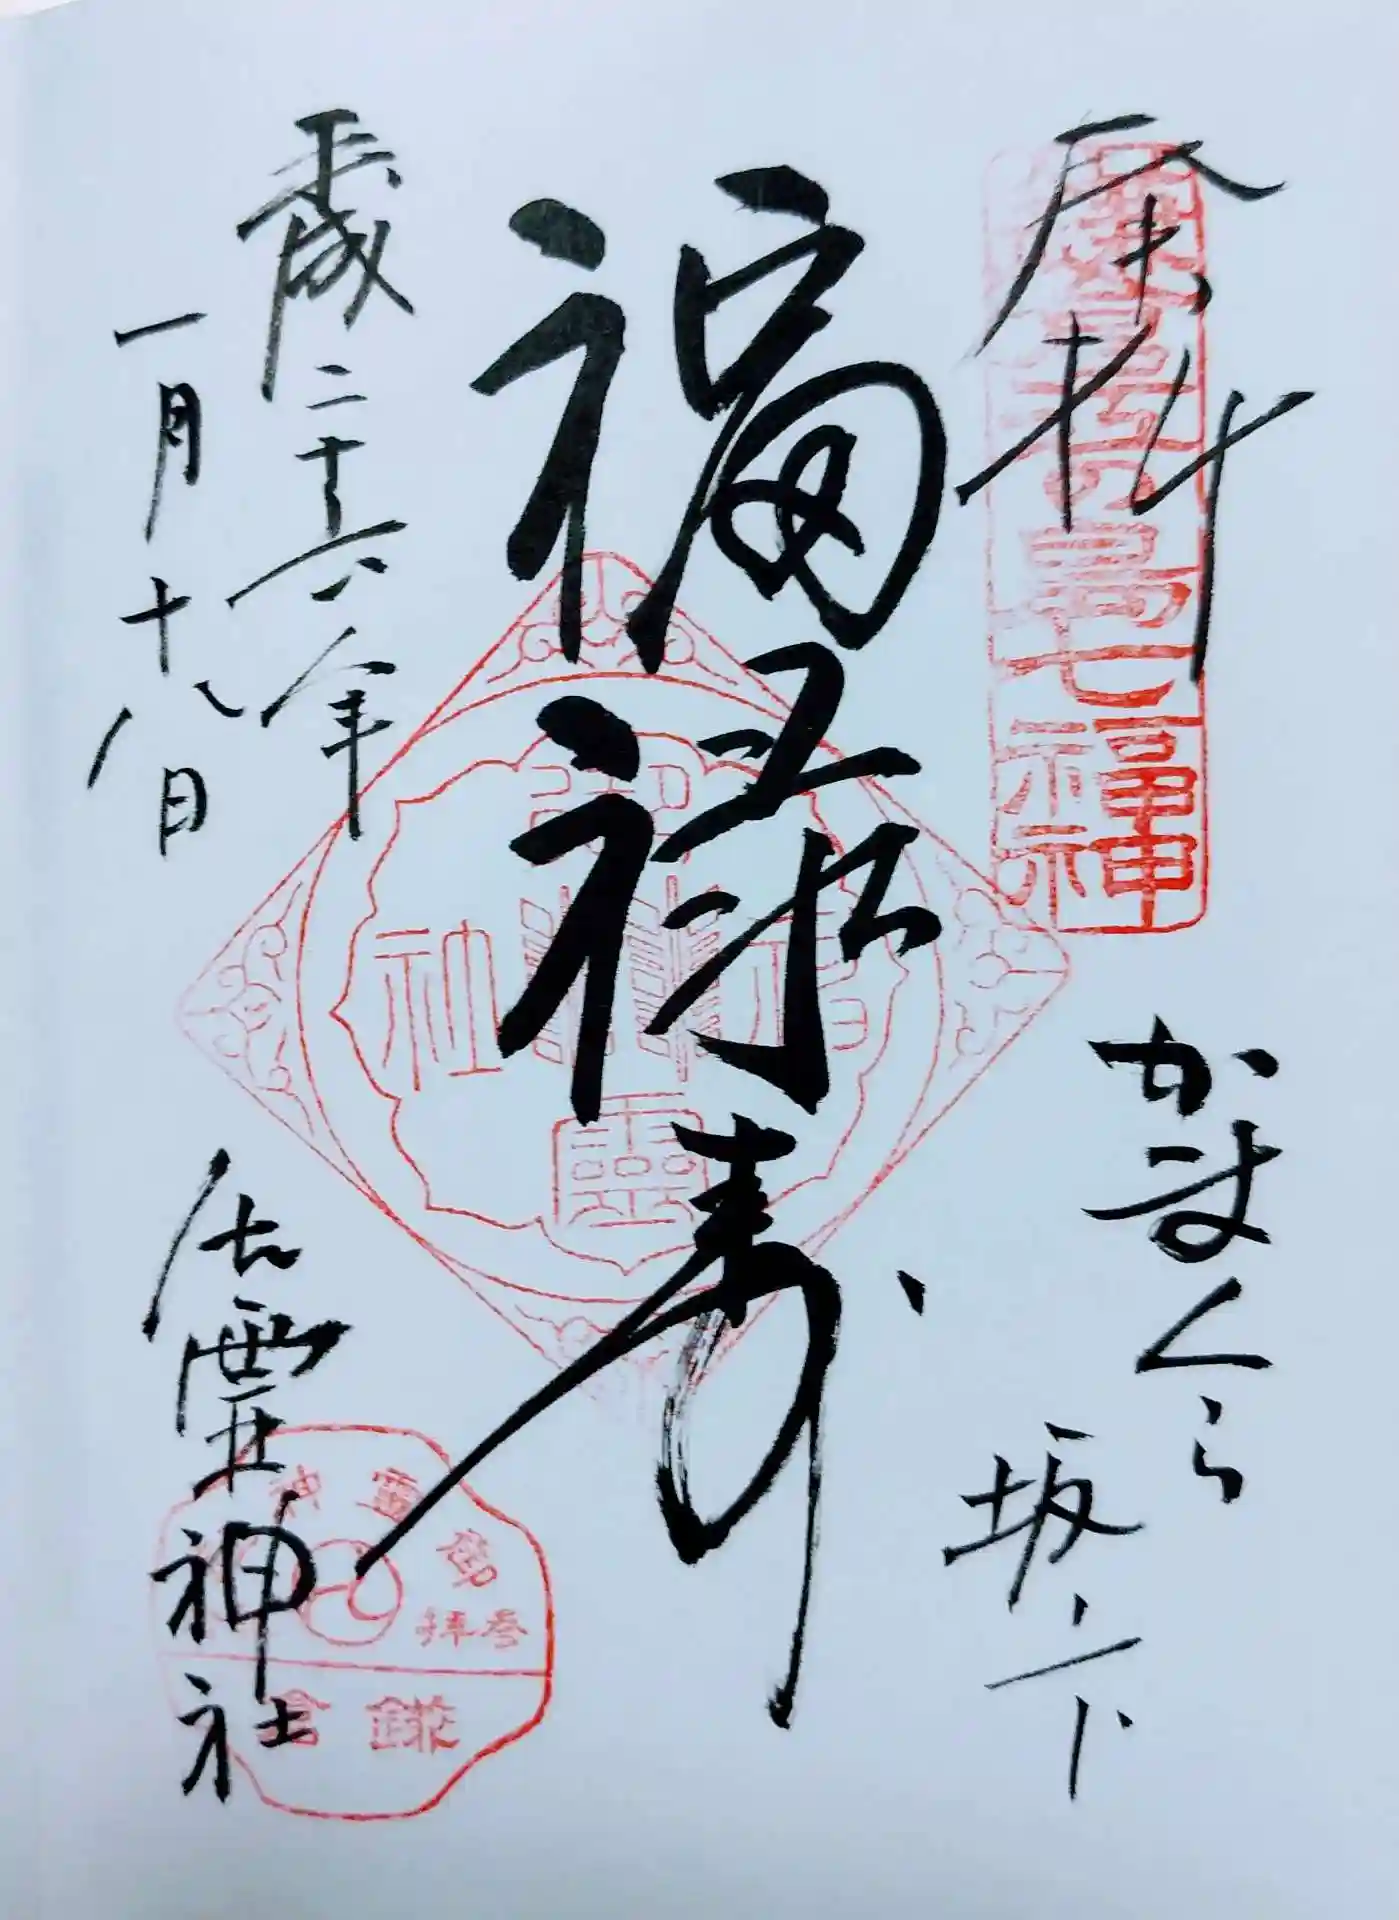 奉拝
鎌倉江の島七福神
かまくら
坂ノ下
福禄寿
御霊神社
平成二十六年
一月十八日
御霊神社
御霊神社
参拝
鎌倉